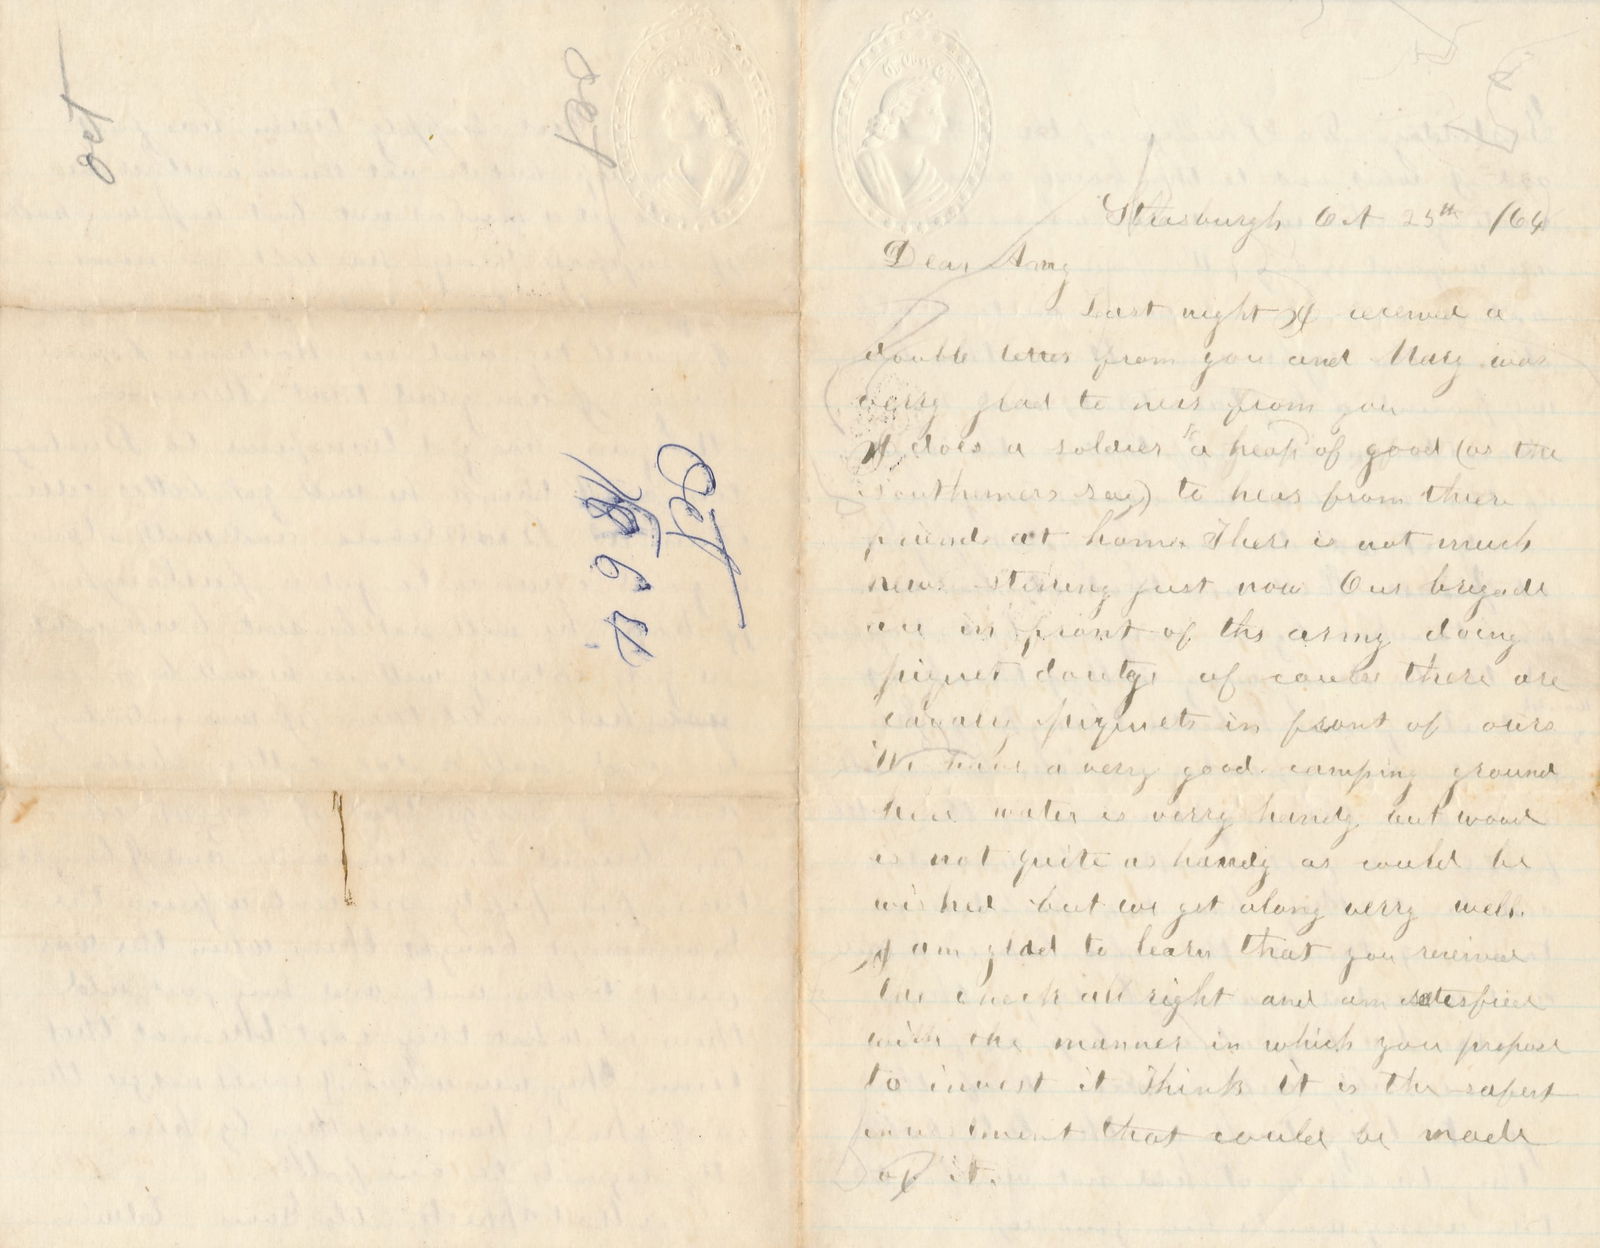 Oct
Oct
Oct
1864
Strasburgh Oct 25th /64
Dear Amy
Last night I received a
double letter from you and Mary was
verry glad to hear from you
It does a soldier "a heap of good (as the
southerners say) to hear from there
friends at home There is not much
news stirring just now Our brigade
are in front of the army doing
piquet doutys of course there are
cavalry piquets in front of ours
We have a verry good camping ground
here water is verry handy but wood
is not quite as handy as could be
wished but we get along verry well.
I am glad to learn that you received
the check all right and am satesfied
with the manner in which you propose
to invest it Think it is the safest
investment that could be made
of it.